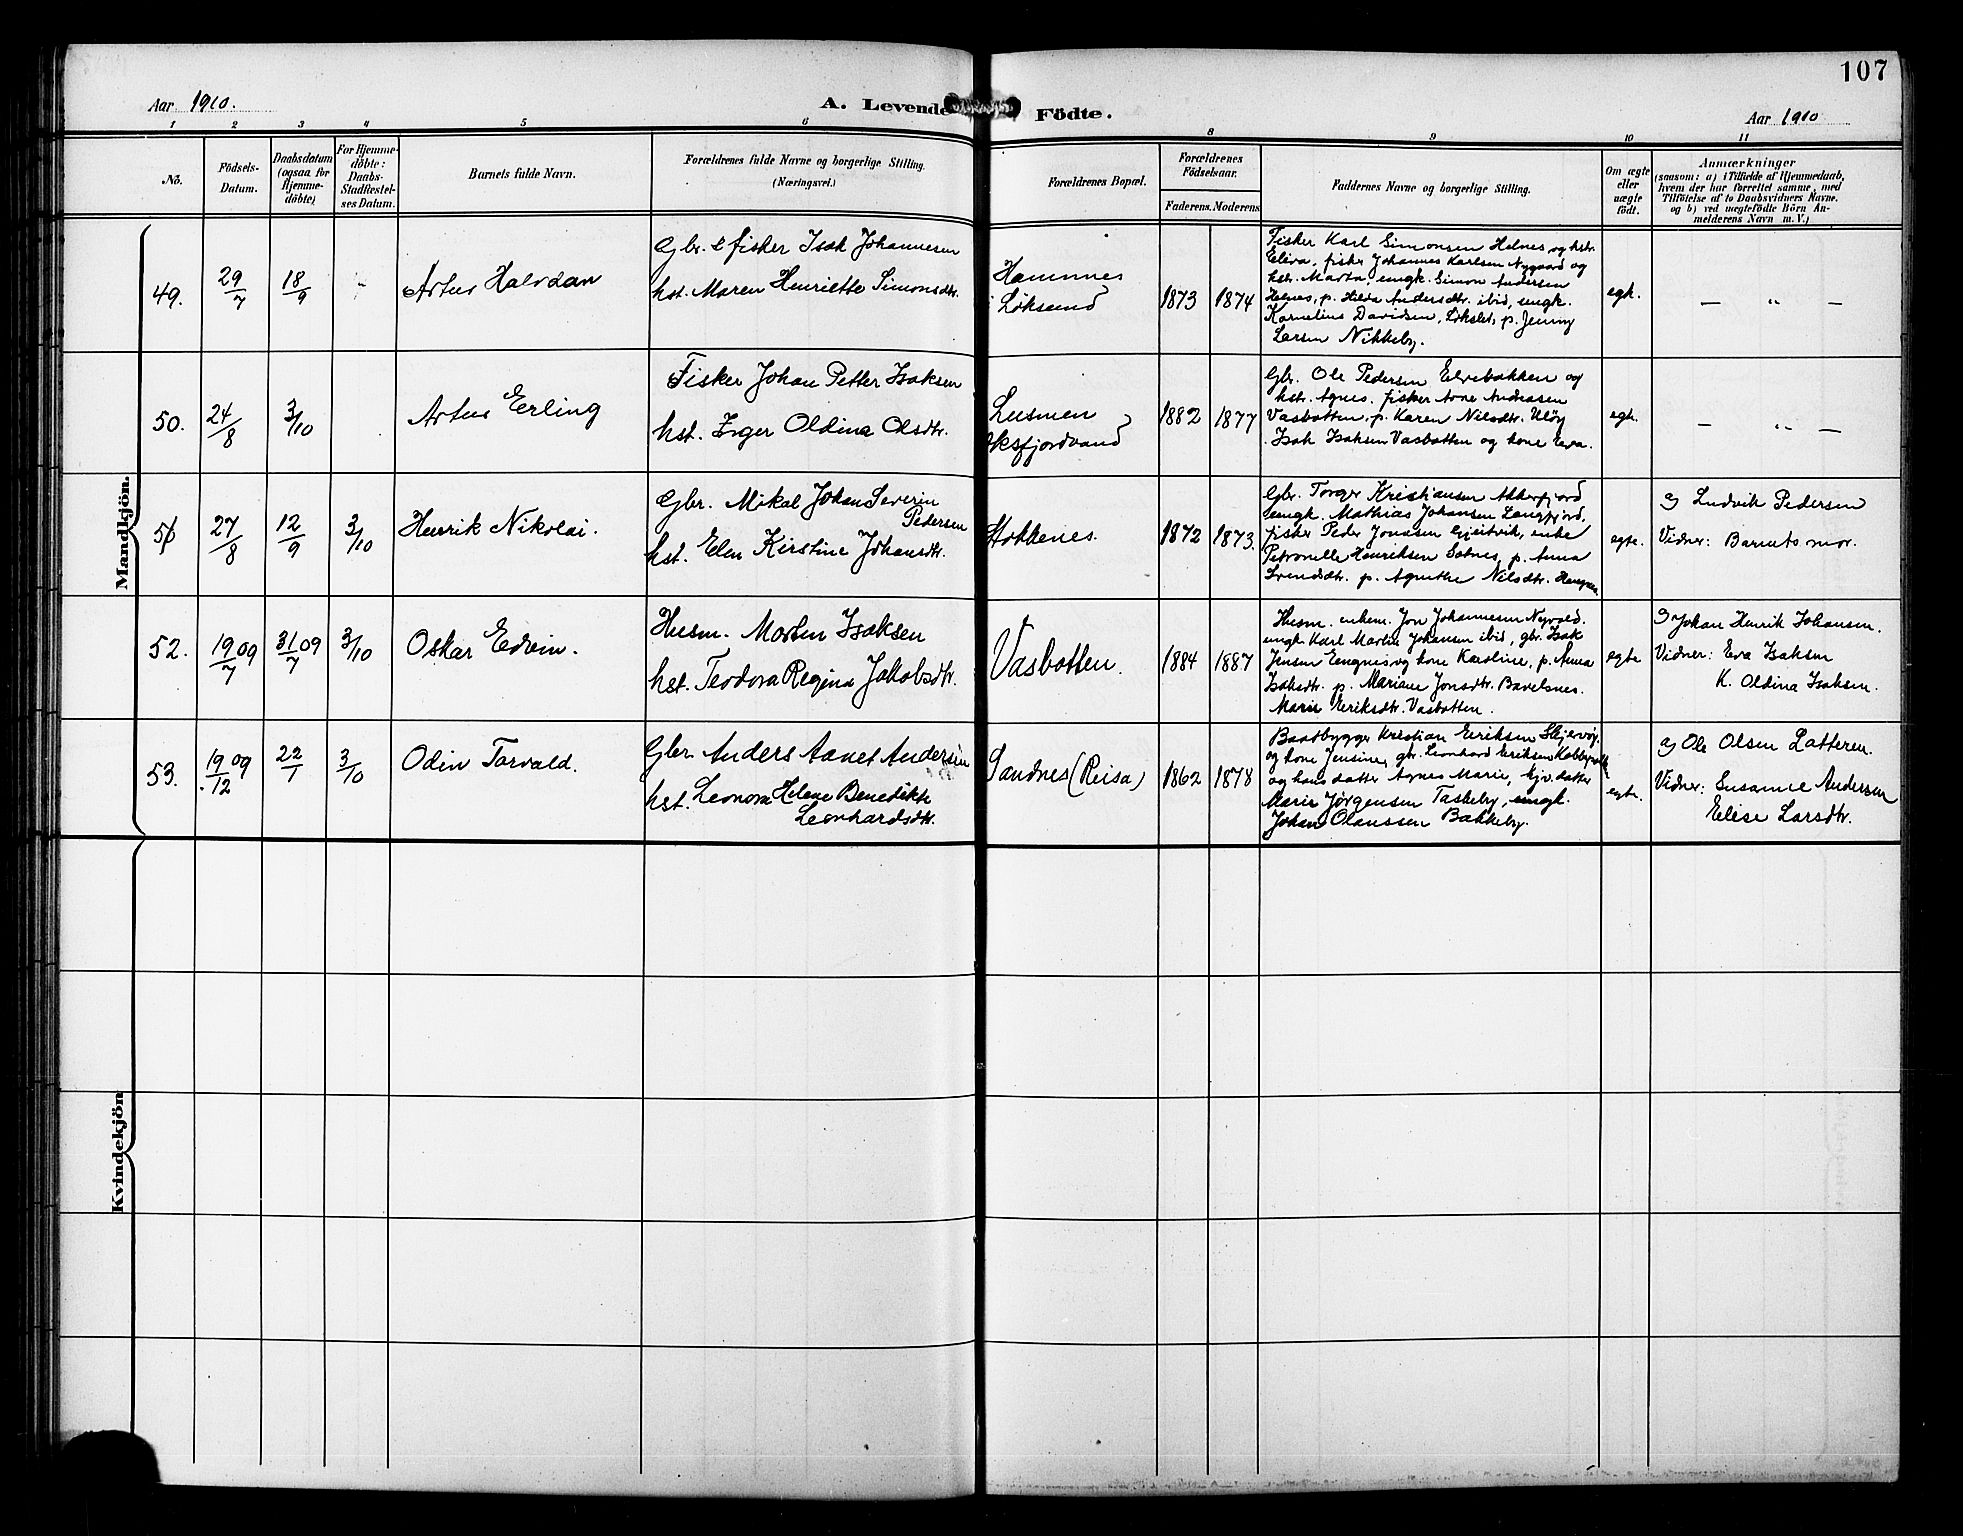 107
Aar 1910.
A. Levende Födte.
Aar 1910
1 2 3 4 5 6 8 9 10 11
No.
Födsels-
Datum.
Daabsdatum
(ogsaa for
Hjemme-
döbte)
For Hjemme-
döbte:
Daabs-
Stadfæstel-
ses Datum.
Barnets fulde Navn.
Forældrenes fulde Navne og borgerlige Stilling.
(Næringsvei.)
Forældrenes Bopæl.
Forældrenes
Födselsaar.
Faderens. Moderens
Faddernes Navne og borgerlige Stilling.
Om ægte
eller
uægte
födt.
Anmærkninger
(saasom: a) i Tilfælde af Hjemmedaab,
hvem der har forrettet samme, med
Tilföielse af to Daabsvidners Navne.
og b) ved uægtefödte Börn An-
melderens Navn m. V.)
Mandkjön.
49.
29/7
18/9
Artur Halvdan
Gbr. & fisker Isak Johannesen
hst. Maren Henriette Simonsdtr.
Hamnnes
i Löksund
1873
1874
Fisker Karl Simonsen Helnes og hstr.
Eliva, fisker Johannes Karlsen Nygaard og
hst. Marta, ungk. Simon Andersen
Helnes, p. Hilda Andersdtr. ibid, ungk.
Kornelius Davidsen, Lökslet, p. Jenny
Larsen Nikkeby.
egte.
— " —
50.
24/8
3/10
Artur Erling
Fisker Johan Petter Isaksen
hst. Inger Oldina Olsdtr.
Oksfjordvand
1882
1877
Gbr. Ole Pedersen Elvebakken og
hst. Agnes, fisker Arne Andreasen
Vasbotten, p. Karen Nilsdtr. Ulöy
Isak Isaksen Vasbotten og kone Eva.
egte.
— " —
51
27/8
12/9
3/10
Henrik Nikolai.
Gbr. Mikal Johan Severin
Pedersen
hst. Elen Kirstine Johansdtr.
Stokkenes.
1872
1873.
Gbr. Torger Kristiansen Akkerfjord
ungk. Mathias Johansen Langfjord,
fisker Peder Jonasen Gjeitvik, enke
Petronelle Henriksen Sotnes, p. Anna
Svendsdtr. p. Agnethe Nilsdtr.
egte.
a) Ludvik Pedersen
Vidner: Barnets mor.
52.
19/7 09
31/7 09
3/10
Oskar Edvin.
Husm. Morten Isaksen
hst. Teodora Regina Jakobsdtr.
Vasbotten.
1884
1887
Husm. enkem. Jon Johannesen Nyvold.
ungk. Karl Martin Johansen ibid, gbr. Isak
Jensen Engnes og kone Karoline, p. Anna
Isaksdtr. p. Mariane Jonsdtr. Bavelsnes.
Marie Eriksdtr. Vasbotten.
egte
a) Johan Henrik Johansen.
Vidner: Eva Isaksen
K. Oldina Isaksen.
53.
19/12 09
22/1
3/10
Odin Torvald.
Gbr Anders Aanet Andersen
hst. Leonora Helene Benedikte
Leonhardsdtr.
Sandnes (Reisa)
1862
1878
Baatbygger Kristian Eriksen Skjervöy
og kone Jensine, gbr. Leonhard Eriksen
og hans datter Agnes Marie, gjv. datter
Marie Jörgensen Taskeby, ungk.
Johan Olaussen Bakkeby.
egte.
a) Ole Olsen Lotteren.
Vidner: Susanne Andersen
Elise Larsdtr.
Kvindekjön